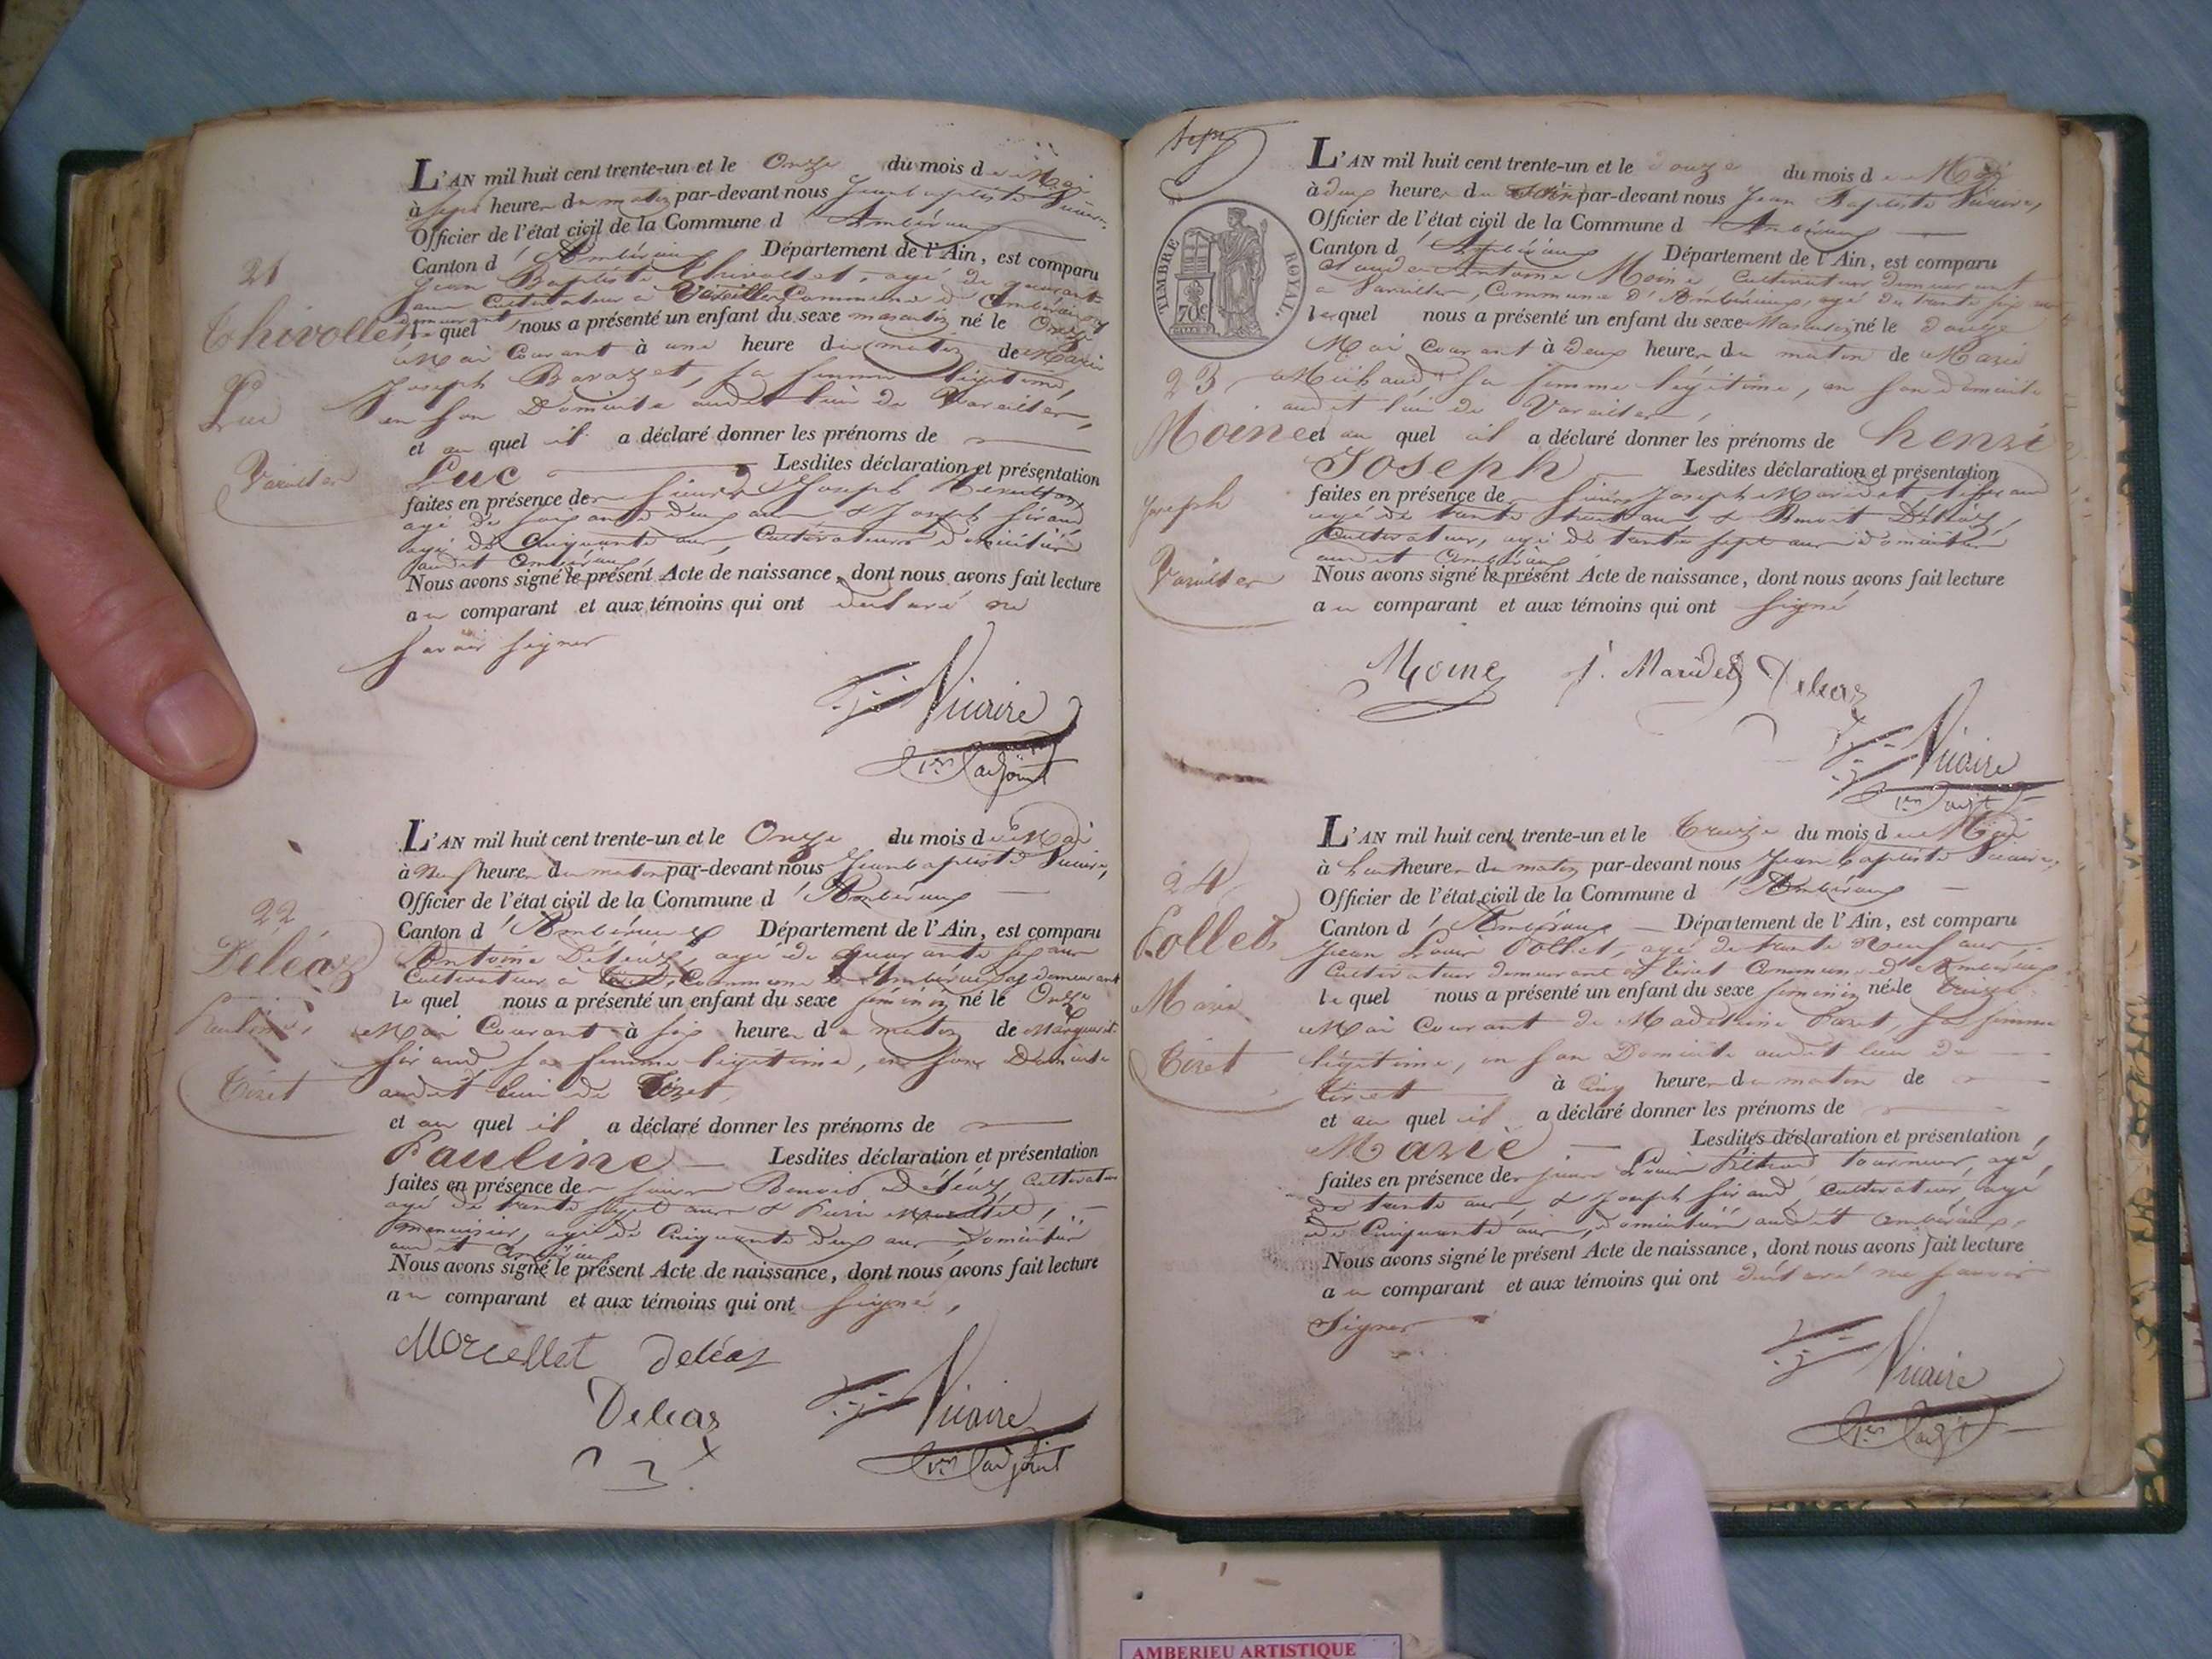 21
Thivollet
Luc
Vareilles
L'AN mil huit cent trente-un et le Onze du mois de Mai
à sept heures du matin par-devant nous Jean baptiste Vicaire
Officier de l'état civil de la Commune d'Ambérieux
Canton d'Ambérieux Département de l'Ain, est comparu
Jean Baptiste Thivollet, agé de quarante
ans Cultivateur à Vareilles, Commune d'Ambérieux y
demeurant lequel nous a présenté un enfant du sexe masculin né le Onze
Mai Courant à une heure du matin de Marie
Joseph Barazet, sa femme légitime,
en son Domicile audit lieu de Vareilles,
et au quel il a déclaré donner les prénoms de
Luc Lesdites déclaration et présentation
faites en présence des sieurs Joseph
agé de soixante deux ans & Joseph Siraud
agé de Cinquante ans, Cultivateurs domiciliés
audit Ambérieux
Nous avons signé le présent Acte de naissance, dont nous avons fait lecture
au comparant et aux témoins qui ont déclaré ne
savoir signer
Vicaire
1er adjoint
22
Déléaz
Pauline
Tiret
L'AN mil huit cent trente-un et le Onze du mois de Mai
à Neuf heures du matin par-devant nous Jean baptiste Vicaire,
Officier de l'état civil de la Commune d'Ambérieux
Canton d'Ambérieux Département de l'Ain, est comparu
Antoine Déléaz, agé de quarante six ans
Cultivateur à Tiret, Commune d'Ambérieux y demeurant
lequel nous a présenté un enfant du sexe féminin né le Onze
Mai Courant à six heures du matin de Marguerite
Siraud sa femme légitime, en son Domicile
audit lieu de Tiret,
et au quel il a déclaré donner les prénoms de
Pauline Lesdites déclaration et présentation
faites en présence des sieurs Benoit Déléaz, Cultivateur
agé de trente sept ans & Pierre Morcellet,
menuisier, agé de Cinquante deux ans Domiciliés
audit Ambérieux
Nous avons signé le présent Acte de naissance, dont nous avons fait lecture
au comparant et aux témoins qui ont signé,
Morcellet Deléaz
Deleas
Vicaire
1er adjoint
TIMBRE ROYAL.
70c
23
Moine
Joseph
Vareilles
L'AN mil huit cent trente-un et le douze du mois de Mai
à deux heures du Soir par-devant nous Jean Baptiste Vicaire,
Officier de l'état civil de la Commune d'Ambérieux
Canton d'Ambérieux Département de l'Ain, est comparu
Claude Antoine Moine Cultivateur demeurant
à Vareilles, Commune d'Ambérieux, agé de trente six ans
lequel nous a présenté un enfant du sexe Masculin né le douze
Mai Courant à Deux heures du matin de Marie
Michaud sa femme légitime, en son domicile
audit lieu de Vareilles,
et au quel il a déclaré donner les prénoms de henri
Joseph Lesdites déclaration et présentation
faites en présence des sieurs Joseph Maridet,
agé de trente huit ans & Benoit Déléaz,
Cultivateur, agé de trente sept ans domiciliés
audit Ambérieux
Nous avons signé le présent Acte de naissance, dont nous avons fait lecture
au comparant et aux témoins qui ont signé
Moine J. Maridet Deleas
Vicaire
1er adjt
24
Pollet
Marie
Tiret
L'AN mil huit cent trente-un et le treize du mois de Mai
à huit heures du matin par-devant nous Jean baptiste Vicaire,
Officier de l'état civil de la Commune d'Ambérieux
Canton d'Ambérieux Département de l'Ain, est comparu
Jean Louis Pollet, agé de trente Neuf ans,
Cultivateur demeurant à Tiret Commune d'Ambérieux
lequel nous a présenté un enfant du sexe féminin né le treize
Mai Courant de Madeleine sa femme
légitime, en son Domicile audit lieu de
Tiret à Cinq heures du matin de
et au quel il a déclaré donner les prénoms de
Marie Lesdites déclaration et présentation
faites en présence des sieurs Louis tourneur, agé
de trente ans, & Joseph Siraud, Cultivateur, agé
de Cinquante ans, domiciliés audit Ambérieux,
Nous avons signé le présent Acte de naissance, dont nous avons fait lecture
au comparant et aux témoins qui ont déclaré ne savoir
Signer
Vicaire
1er adjt
AMBERIEU ARTISTIQUE